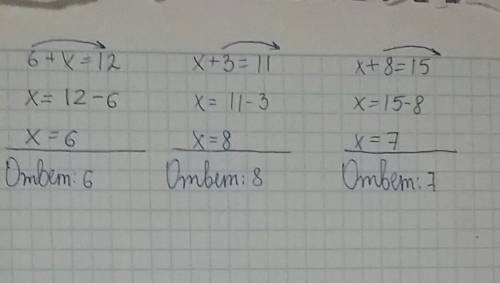 6+x=12
x=12-6
x=6
Ответ: 6
x+3=11
x=11-3
x=8
Ответ: 8
x+8=15
x=15-8
x=7
Ответ: 7